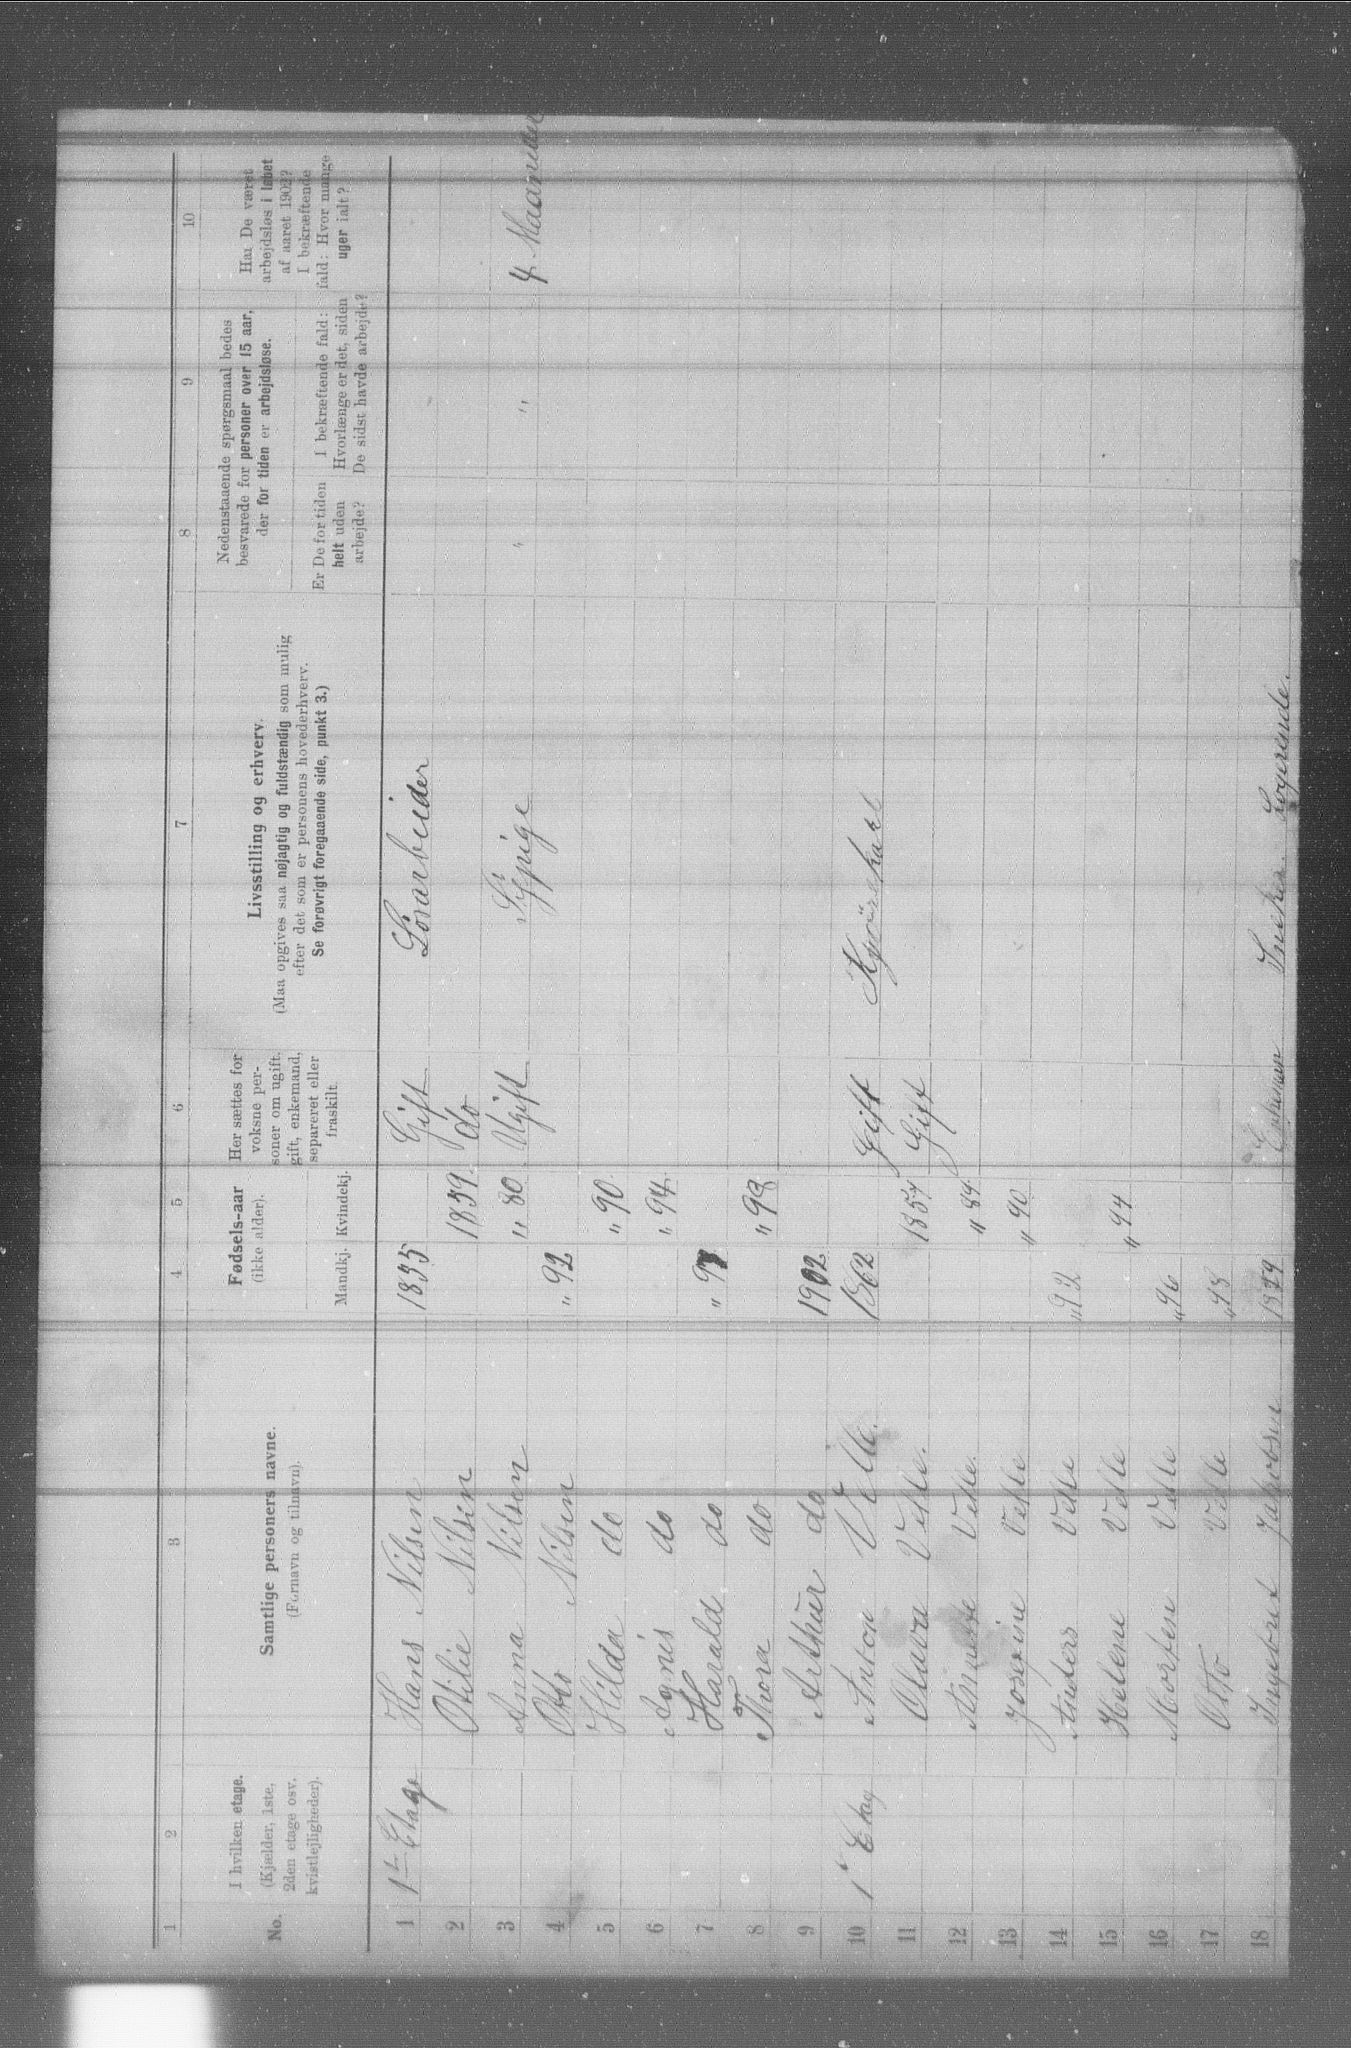 1 2 3 4 5 6 7 8 9 10
No.
I hvilken etage.
(Kjælder, 1ste,
2den etage osv.
kvistlejligheder).
Samtlige personers navne.
(Fornavn og tilnavn).
Fødsels-aar
(ikke alder).
Mandkj. Kvindekj.
Her sættes for
voksne per-
soner om ugift,
gift, enkemand,
separeret eller
fraskilt.
Livsstilling og erhverv.
(Maa opgives saa nøjagtig og fuldstændig som mulig
efter det som er personens hovederhverv.
Se forøvrigt foregaaende side, punkt 3.)
Nedenstaaende spørgsmaal bedes
besvarede for personer over 15 aar,
der for tiden er arbejdsløse.
Er De for tiden
helt uden
arbejde?
I bekræftende fald:
Hvorlænge er det, siden
De sidst havde arbejde?
Har De været
arbejdsløs i løbet
af aaret 1902?
I bekræftende
fald: Hvor mange
uger ialt?
1 1ste Etage Hans Nilsen 1835 Gift Løsarbeider
2 Otilie Nilsen 1859 do
3 Anna Nilsen " 80 Ugift Sypige " " 4 Maaneder
4 Otto Nilsen " 92
5 Hilda do " 90
6 Agnis do " 94
7 Harald do
8 Thora do " 98
9 Arthur do 1902
10 1 Etag Anton Vetle. 1862 Gift Kjørekarl
11 Olava Vetle. 1857 Gift
12 Vetle. " 84
13 Josefine Vetle " 90
14 Anders Vetle " 92
15 Helene Vetle " 94
16 Morten Vetle " 96
17 Otto Vetle " 98
18 Ingebret Jakobsen 1829 Enkeman Snekker Logerende.